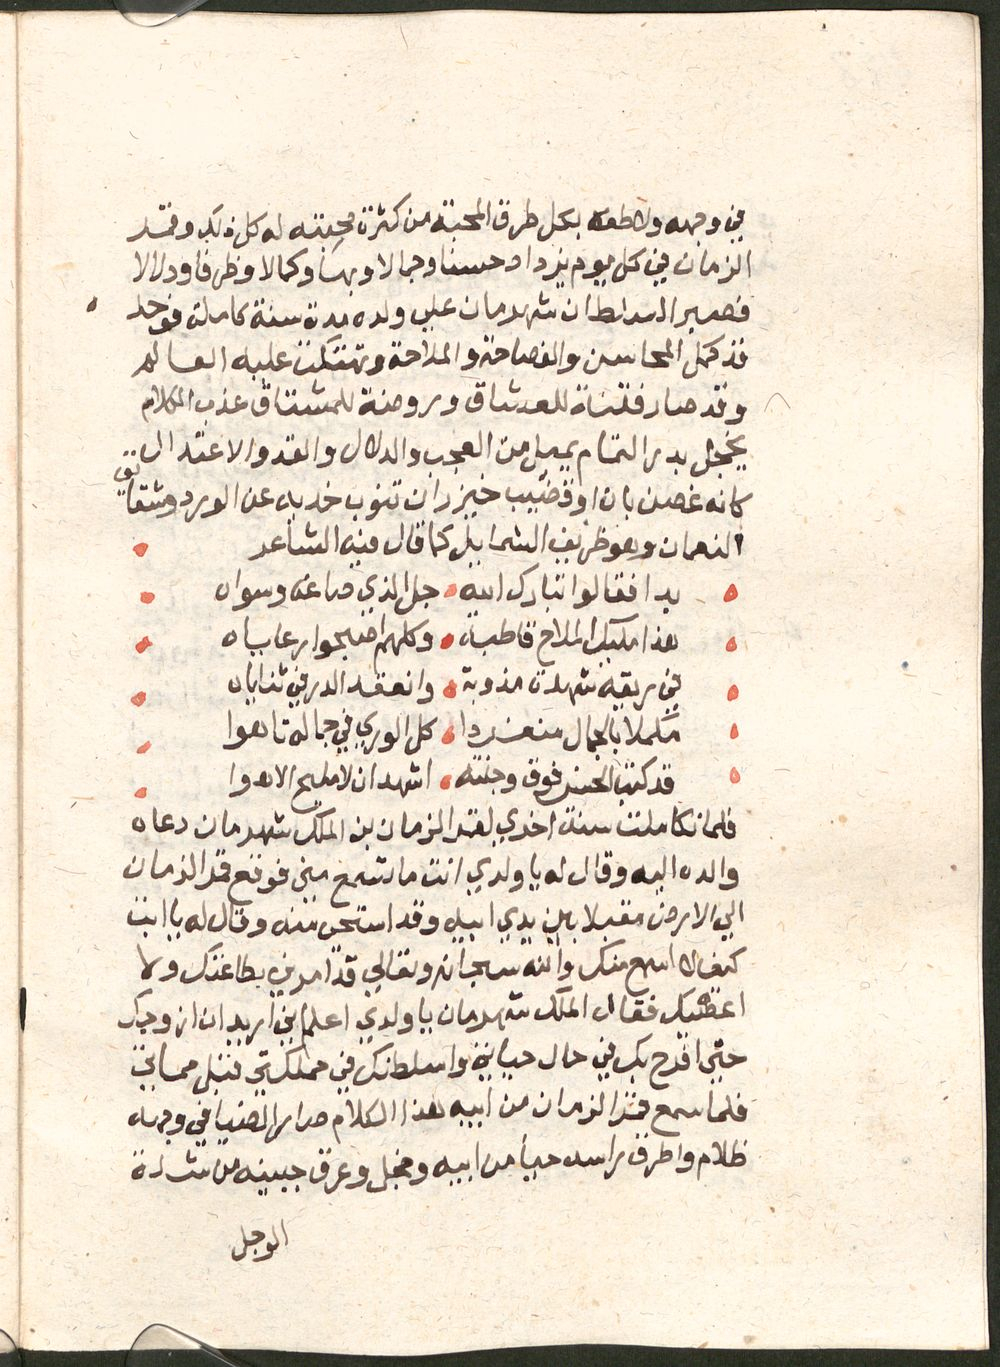 في وجهه ولاطفه بكل طرق المحبة من كثرة محبته له كل ذلك وقمر
الزمان في كل يوم يزداد حسنا وجمالا وبهاً وكمالا وظرفا ودلالا
فصبر السلطان شهرمان علي ولده مدة سنة كاملة فوجد
قد كمل المحاسن والفصاحة والملاحة وتهتكت عليه العالم
وقد صار فتنة للعشاق وروضة للمشتاق عذب الكلام
يخجل بدر التمام يميل من العجب والدلال والقد والاعتدال
كانه غصن بان او قضيب خيزران تنوب خديه عن الورد وشقايق
النعمان وهو ظريف الشمايل كما قال فيه الشاعر
بدا فقالوا تبارك الله جل الذي صاغه وسواه
هذا مليك الملاح قاطبة وكلهم اصبحوا رعاياه
في ريقه شهدة مذوبة وانعقد الدر في ثناياه
مكملا بالجمال منفردا كل الوري في جماله تاهوا
قد كتب الحسن فوق وجنته اشهد ان لا مليح الا هوا
فلما تكاملت سنة اخري لقمر الزمان بن الملك شهرمان دعاه
والده اليه وقال له يا ولدي انت ما تسمع مني فوقع قمر الزمان
الي الارض مقبلا بين يدي ابيه وقد استحي منه وقال له يا ابت
كيف لا اسمع منك والله سبحانه وتعالي قد امرني بطاعتك ولا
اعصيك فقال الملك شهرمان يا ولدي اعلم اني اريد ان ازوجك
حتي افرح بك في حال حياتي واسلطنك في مملكتي قبل مماتي
فلما سمع قمر الزمان من ابيه هذا الكلام صار الضيا في وجهه
ظلام واطرق براسه حياً من ابيه وخجل وعرق جبينه من شدة
الوجل